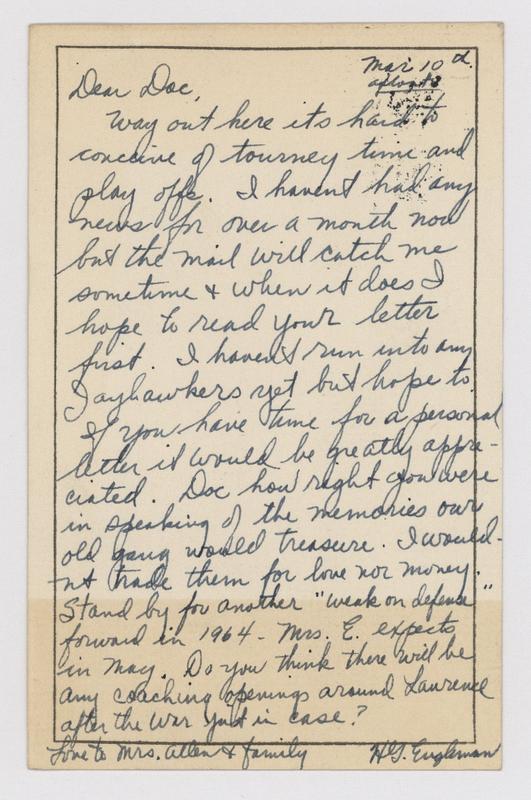 Mar 10th
Dear Doc,
Way out here its hard to
conceive of tourney time and
play offs. I havent had any
news for over a month now
but the mail will catch me
sometime & when it does I
hope to read your letter
first. I haven't run into any
Jayhawkers yet but hope to.
If you have time for a personal
letter it would be greatly appre-
ciated. Doc how right you were
in speaking of the memories our
old gang would treasure. I would-
nt trade them for love nor money.
Stand by for another "weak on defense"
forward in 1964 - Mrs. E. expects
in May. Do you think there will be
any coaching openings around Lawrence
after the War just in case?
Love to Mrs. Allen & family H.G. Engleman